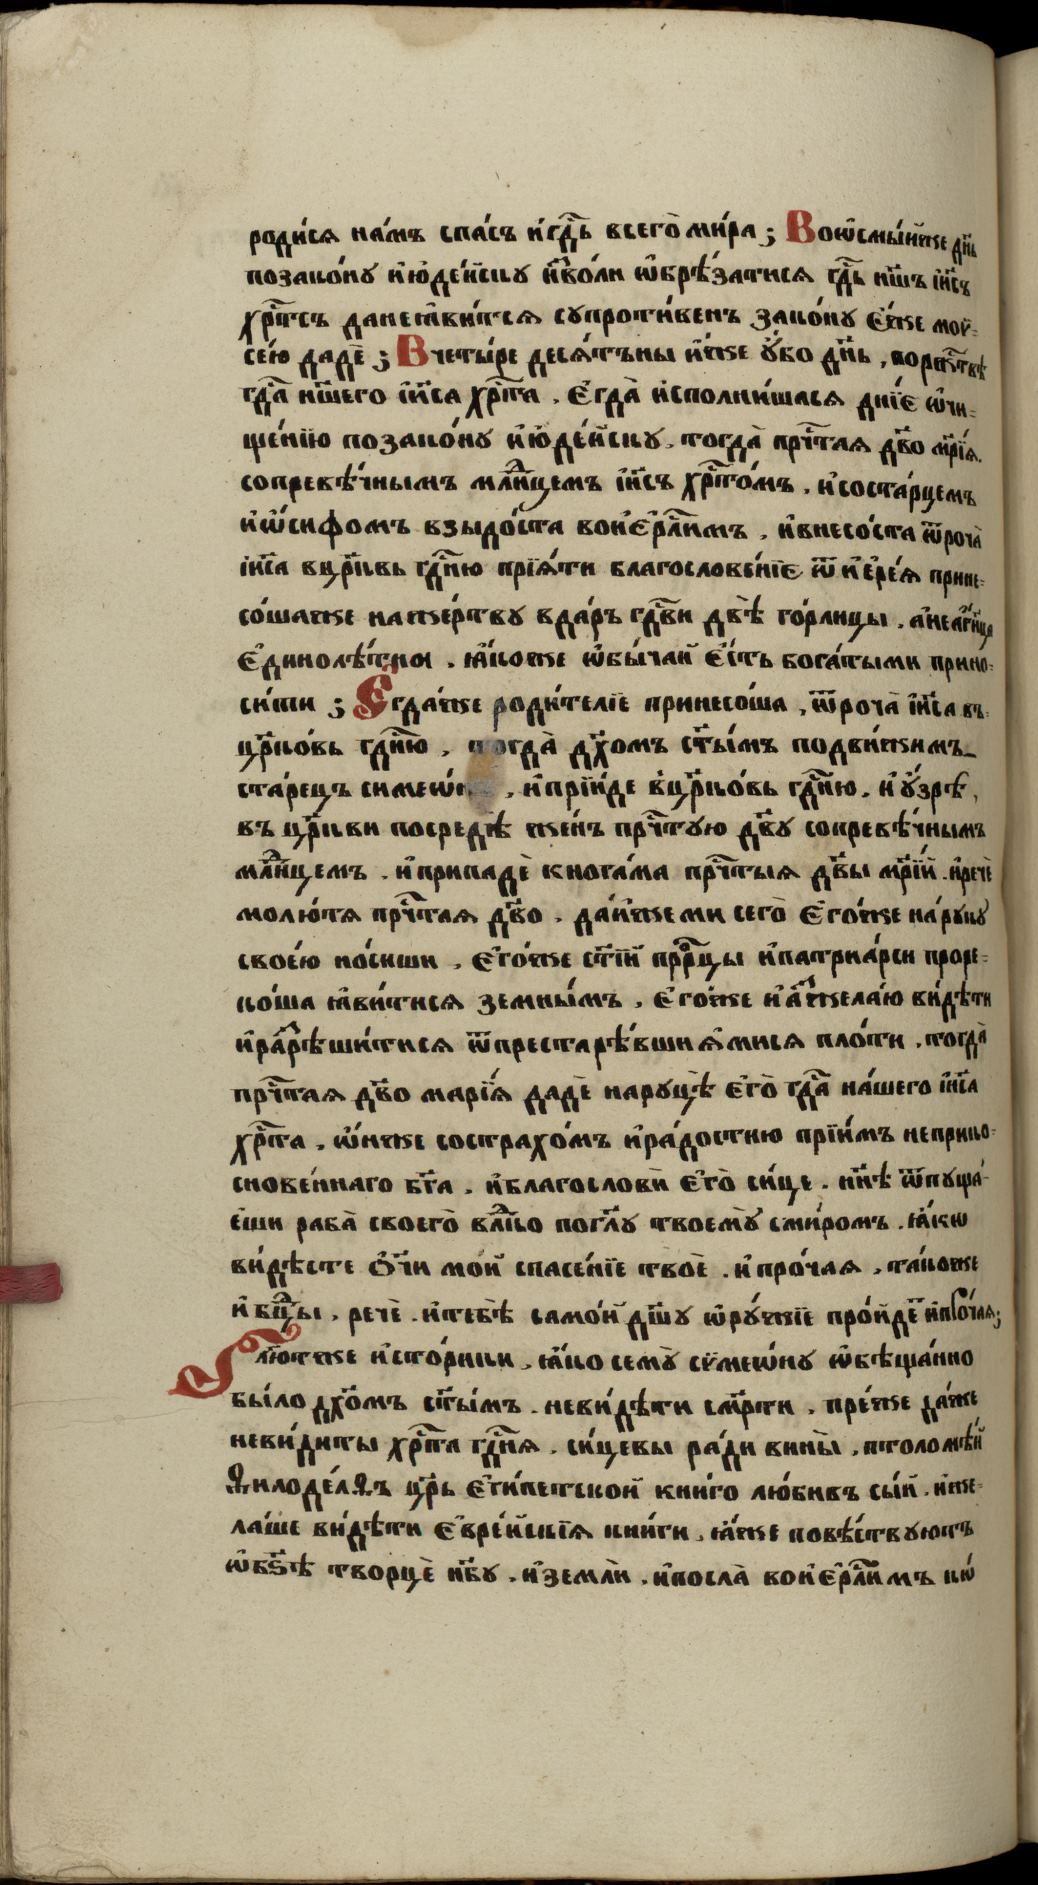 роди́сѧ на́мъ спа́съ и҆гдⷭ҇ь всегѡ̀ ми́ра ; Воѡ҆смы́йже дн҃ь
позако́ну и҆ю҆де́йску и҆зво́ли ѡ҆брѣ́затисѧ гдⷭ҇ь нш҃ъ і҆и҃съ
хрⷭ҇тсъ данеꙗ҆ви́тсѧ супроти́венъ зако́ну є҆́же мои̑-
се́ю дадѐ ; Вчеты́ре десѧ́тъны и҆́же ᲂу҆́бо дн҃ь , порожⷭ҇твѣ
гдⷭ҇а нш҃его і҆и҃са хрⷭ҇та . є҆гда̀ и҆спо́лнишасѧ дні́є ѡ҆чи-
ще́нїю позако́ну и҆ю҆де́йску , тогда̀ прчⷭ҇таѧ дв҃о мр҃і́ѧ .
сопревѣ́чнымъ млⷣнцемъ і҆и҃съ хрⷭ҇то́мъ . и҆соста́рцемъ
и҆ѡ҆́сифомъ взыдо́ста вои҆є҆рⷭ҇лимъ . и҆внесо́ста ѿроча̀
і҆и҃са вцр҃ковь гдⷭ҇ню прїѧ́ти благослове́нїє ѿ и҆є҆ре́ѧ прине-
со́шаже наже́ртву вда́ръ гдⷭ҇ви двѣ̀ го́рлицы . а҆неа҆́гнца
є҆диполѣ́тнꙗ . ꙗ҆́коже ѡ҆бы́чай є҆́сть бога́тыми прино-
си́ти ; Є҆гда́же роди́телїе принесо́ша , ѿроча̀ і҆и҃са въ-
цр҃ко́вь гдⷭ҇ню , тогда̀ дх҃омъ ст҃ы́мъ подви́жимъ
ста́рецъ симеѡ҆́ , и҆прїи́де вцр҃ко́вь гдⷭ҇ню . и҆ ᲂу҆́зрѣ ,
въ цр҃кви посредѣ̀ же́нъ прчⷭ҇тую дв҃у сопревѣ́чнымъ
млⷣнцемъ . и҆припадѐ кнога́ма прчⷭ҇тыѧ дв҃ы мр҃і́и . и҆речѐ
молю́тѧ прчⷭ҇таѧ дв҃о . да́й́же ми сего̀ є҆го́же на́руку
свое́ю но́сиши , є҆го́же ст҃і́и пррⷪ҇цы и҆патриа́рси проре-
ко́ша ꙗ҆ви́тисѧ земны́мъ , є҆го́же и҆а҆́зⸯжела́ю ви́дѣти
и҆разⸯрѣши́тисѧ ѿпрестарѣ́вшиѧ҆́мисѧ пло́ти . тогда̀
прчⷭ҇таѧ дв҃о марі́ѧ дадѐ наруцѣ̀ є҆го̀ гдⷭ҇а на́шего і҆и҃са
хрⷭ҇та , ѡ҆́нже состра́хомъ и҆ра́достию прїи́мъ неприко-
снове́ннаго бг҃а . и҆благословѝ є҆го̀ си́це . нн҃ѣ ѿпуща́-
е҆ши раба̀ своего̀ влⷣко погл҃у твоему̀ сми́ромъ . ꙗ҆́кѡ
ви́дѣсте ѻ҆́чи мо́и спасе́нїе твоѐ . и҆про́чаѧ , та́коже
и҆вцⷣы , речѐ . и҆тебѣ̀ само́й дш҃у ѡ҆ру́жїе про́йде҆ и҆про́чаѧ ;
Гл҃ю́тже и҆сто́рики , ꙗ҆́ко сему̀ сѷмеѡ́ну ѡ҆бѣща́нно
бы́ло дх҃о́мъ ст҃ы́мъ . неви́дѣти сме́рти , пре́же да́же
неви́диты хрⷭ҇та гдⷭ҇нѧ . си́цевы ра́ди вины̀ . птоломѣ́й
Ѳилоде́лѲъ цр҃ь є҆ги́петской книго лю́бивъ сы́й . и҆же-
ла́ше ви́дѣти є҆вре́йскїѧ кни́ги , ꙗ҆́же повѣ́ствуютъ
ѡ҆бз҃ѣ творцѐ нб҃у . и҆землѝ . и҆посла̀ вои҆є҆рⷭ҇ли́мъ кѡ